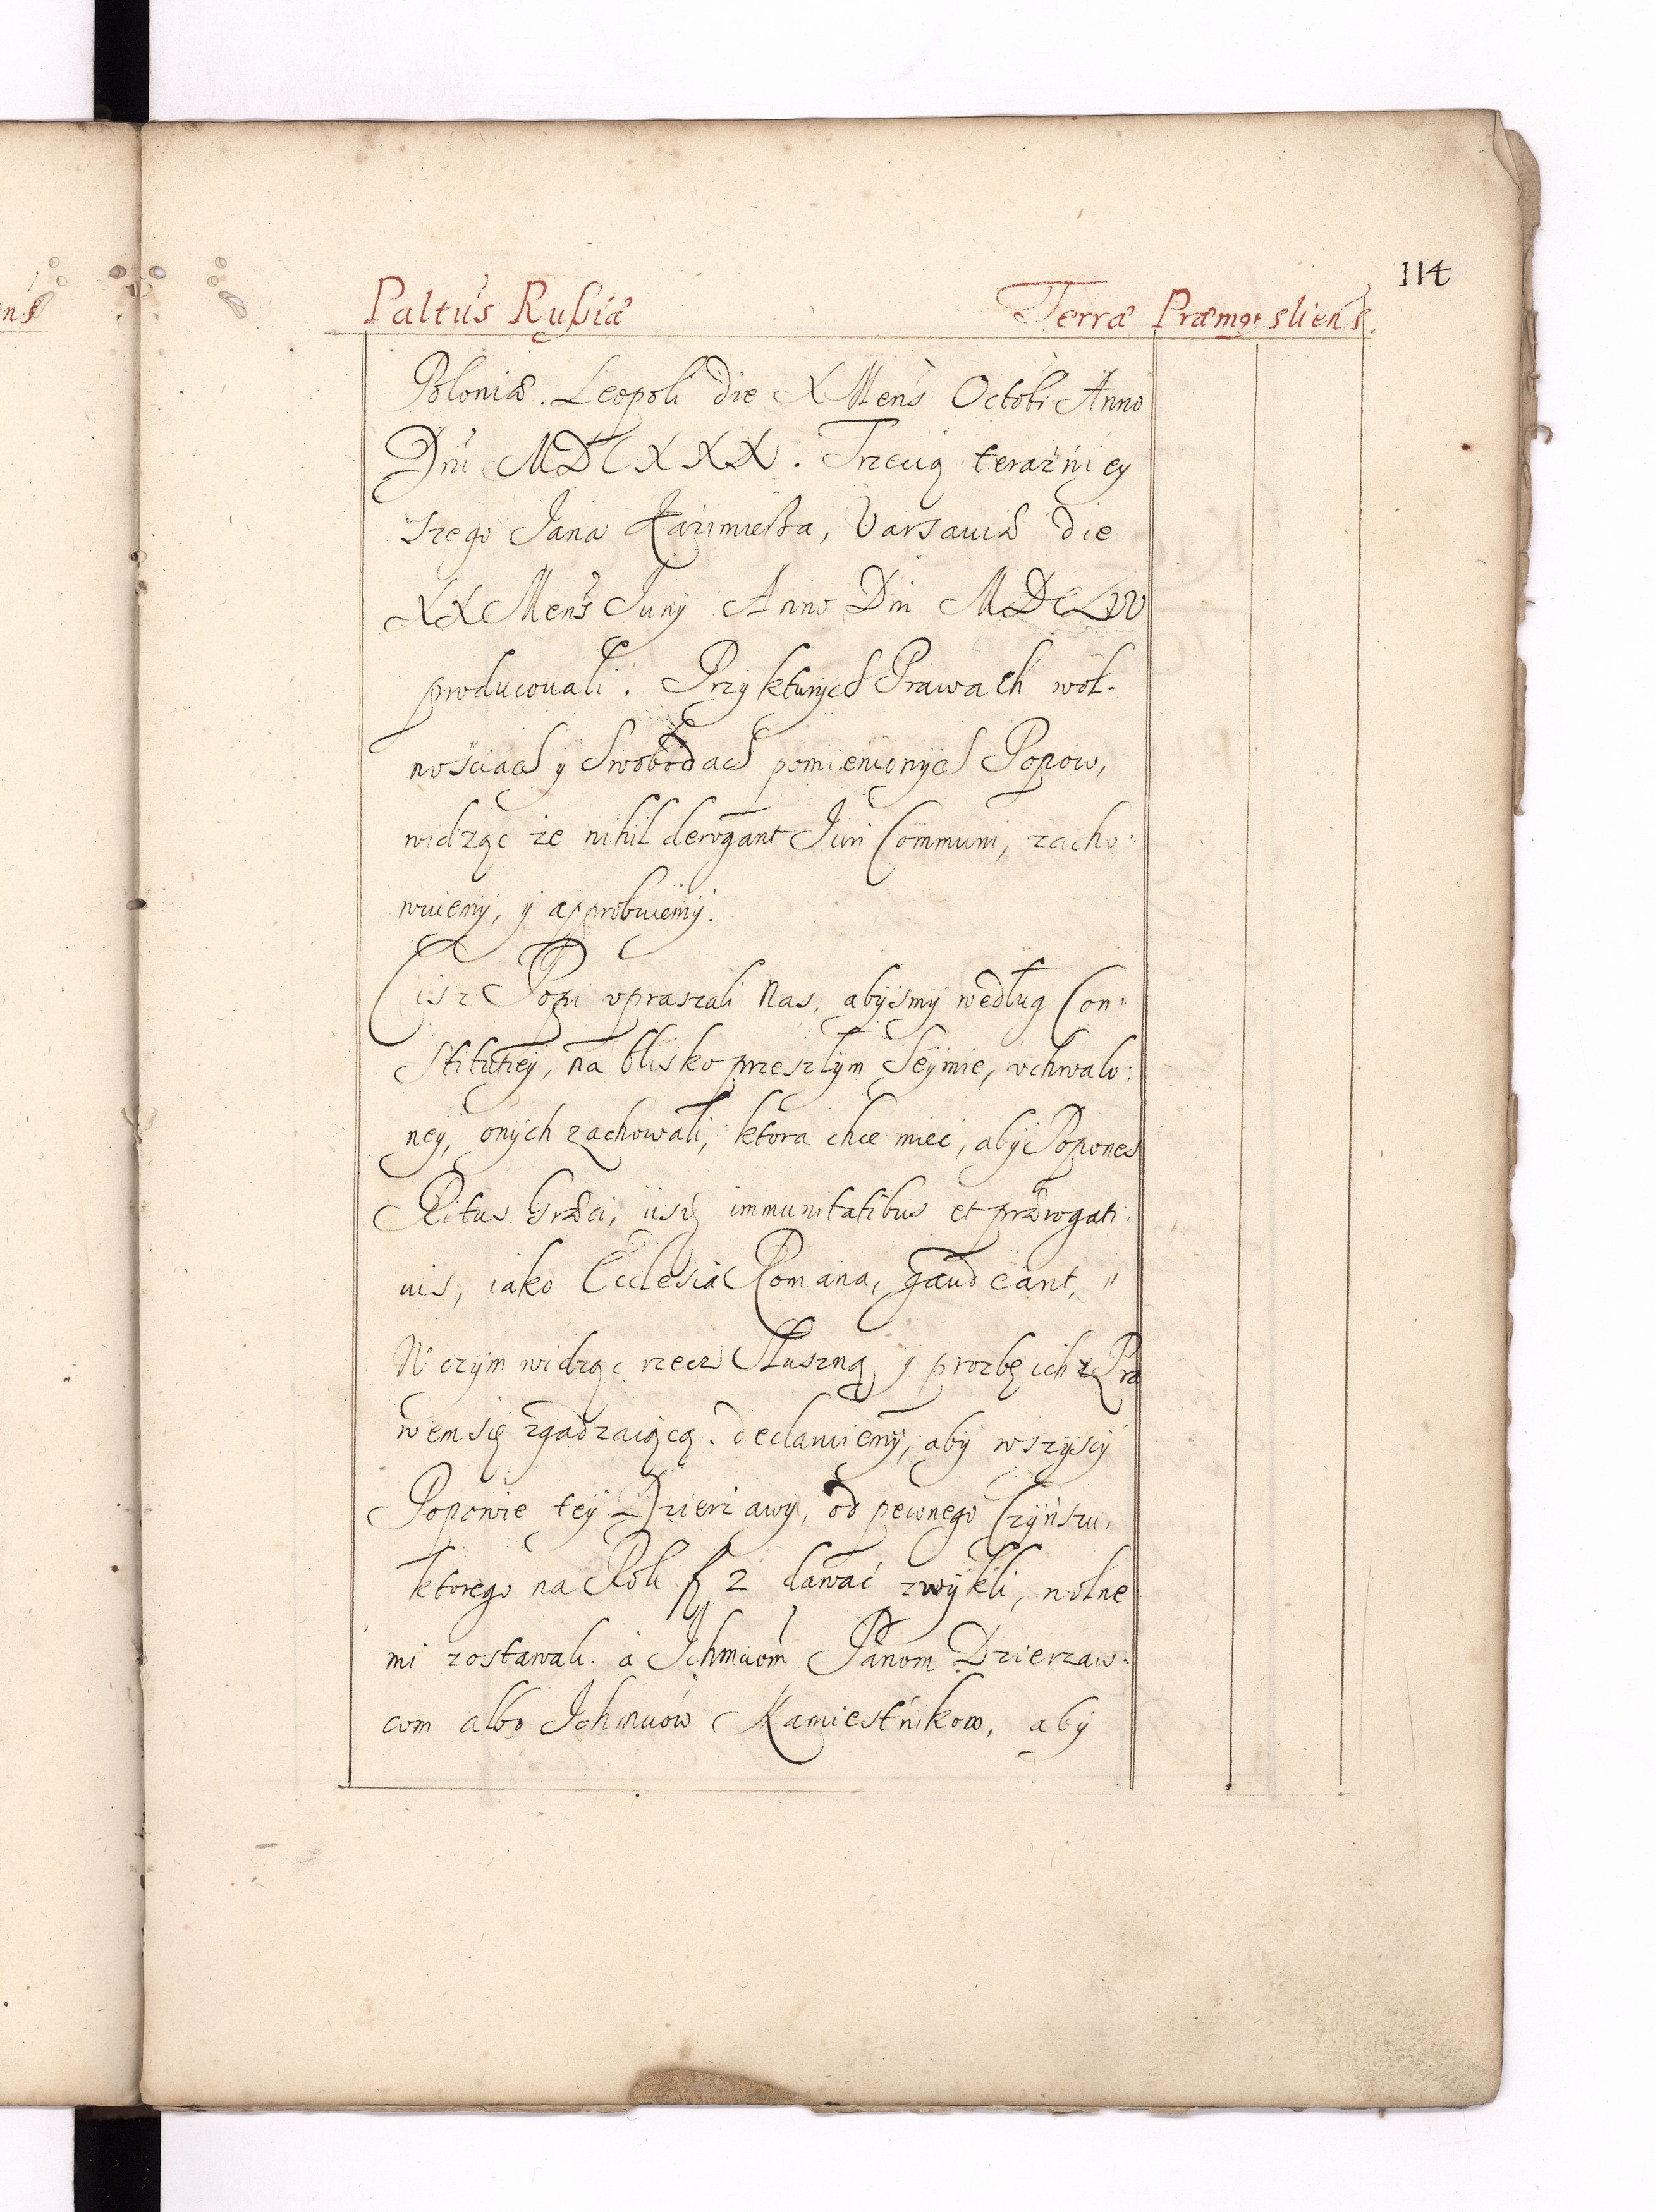 114
Paltus Russiæ Terræ Præmysliens.
Poloniæ. Leopoli die X Mens Octobr Anno
Dni MDCXXX. Trzecią terazniey
szego Jana Kazimierza, Varsaviæ die
XX Mens Juny Anno Dni MDCLVV
producowali. Przy ktorych Prawach wol-
nościach y Swobodach pomienionych Popow,
widząc że nihil derogant Juri Communi, zacho:
wuiemy, y approbuiemy.
Cisz Popi vpraszali Nas, abysmy według Con:
stitutiey, na blisko przeszłym Seymie, vchwalo:
ney, onych zachowali, ktora chce mieć, aby Popones
Ritus Græci, iisdem immunitatibus et prærogati:
uis, iako Ecclesia Romana, gaudeant,
W czym widząc rzecz słuszną y prozbę ich z Pra
wem się zgadzaiącą. declaruiemy, aby wszyscy
Popowie tey Dzierżawy, od pewnego Czynszu,
ktorego na Rok fl 2 dawać zwykli, wolne
mi zostawali. a Ichmciom Panom Dzierzaw:
com albo Ichmciow Namiestnikow, aby